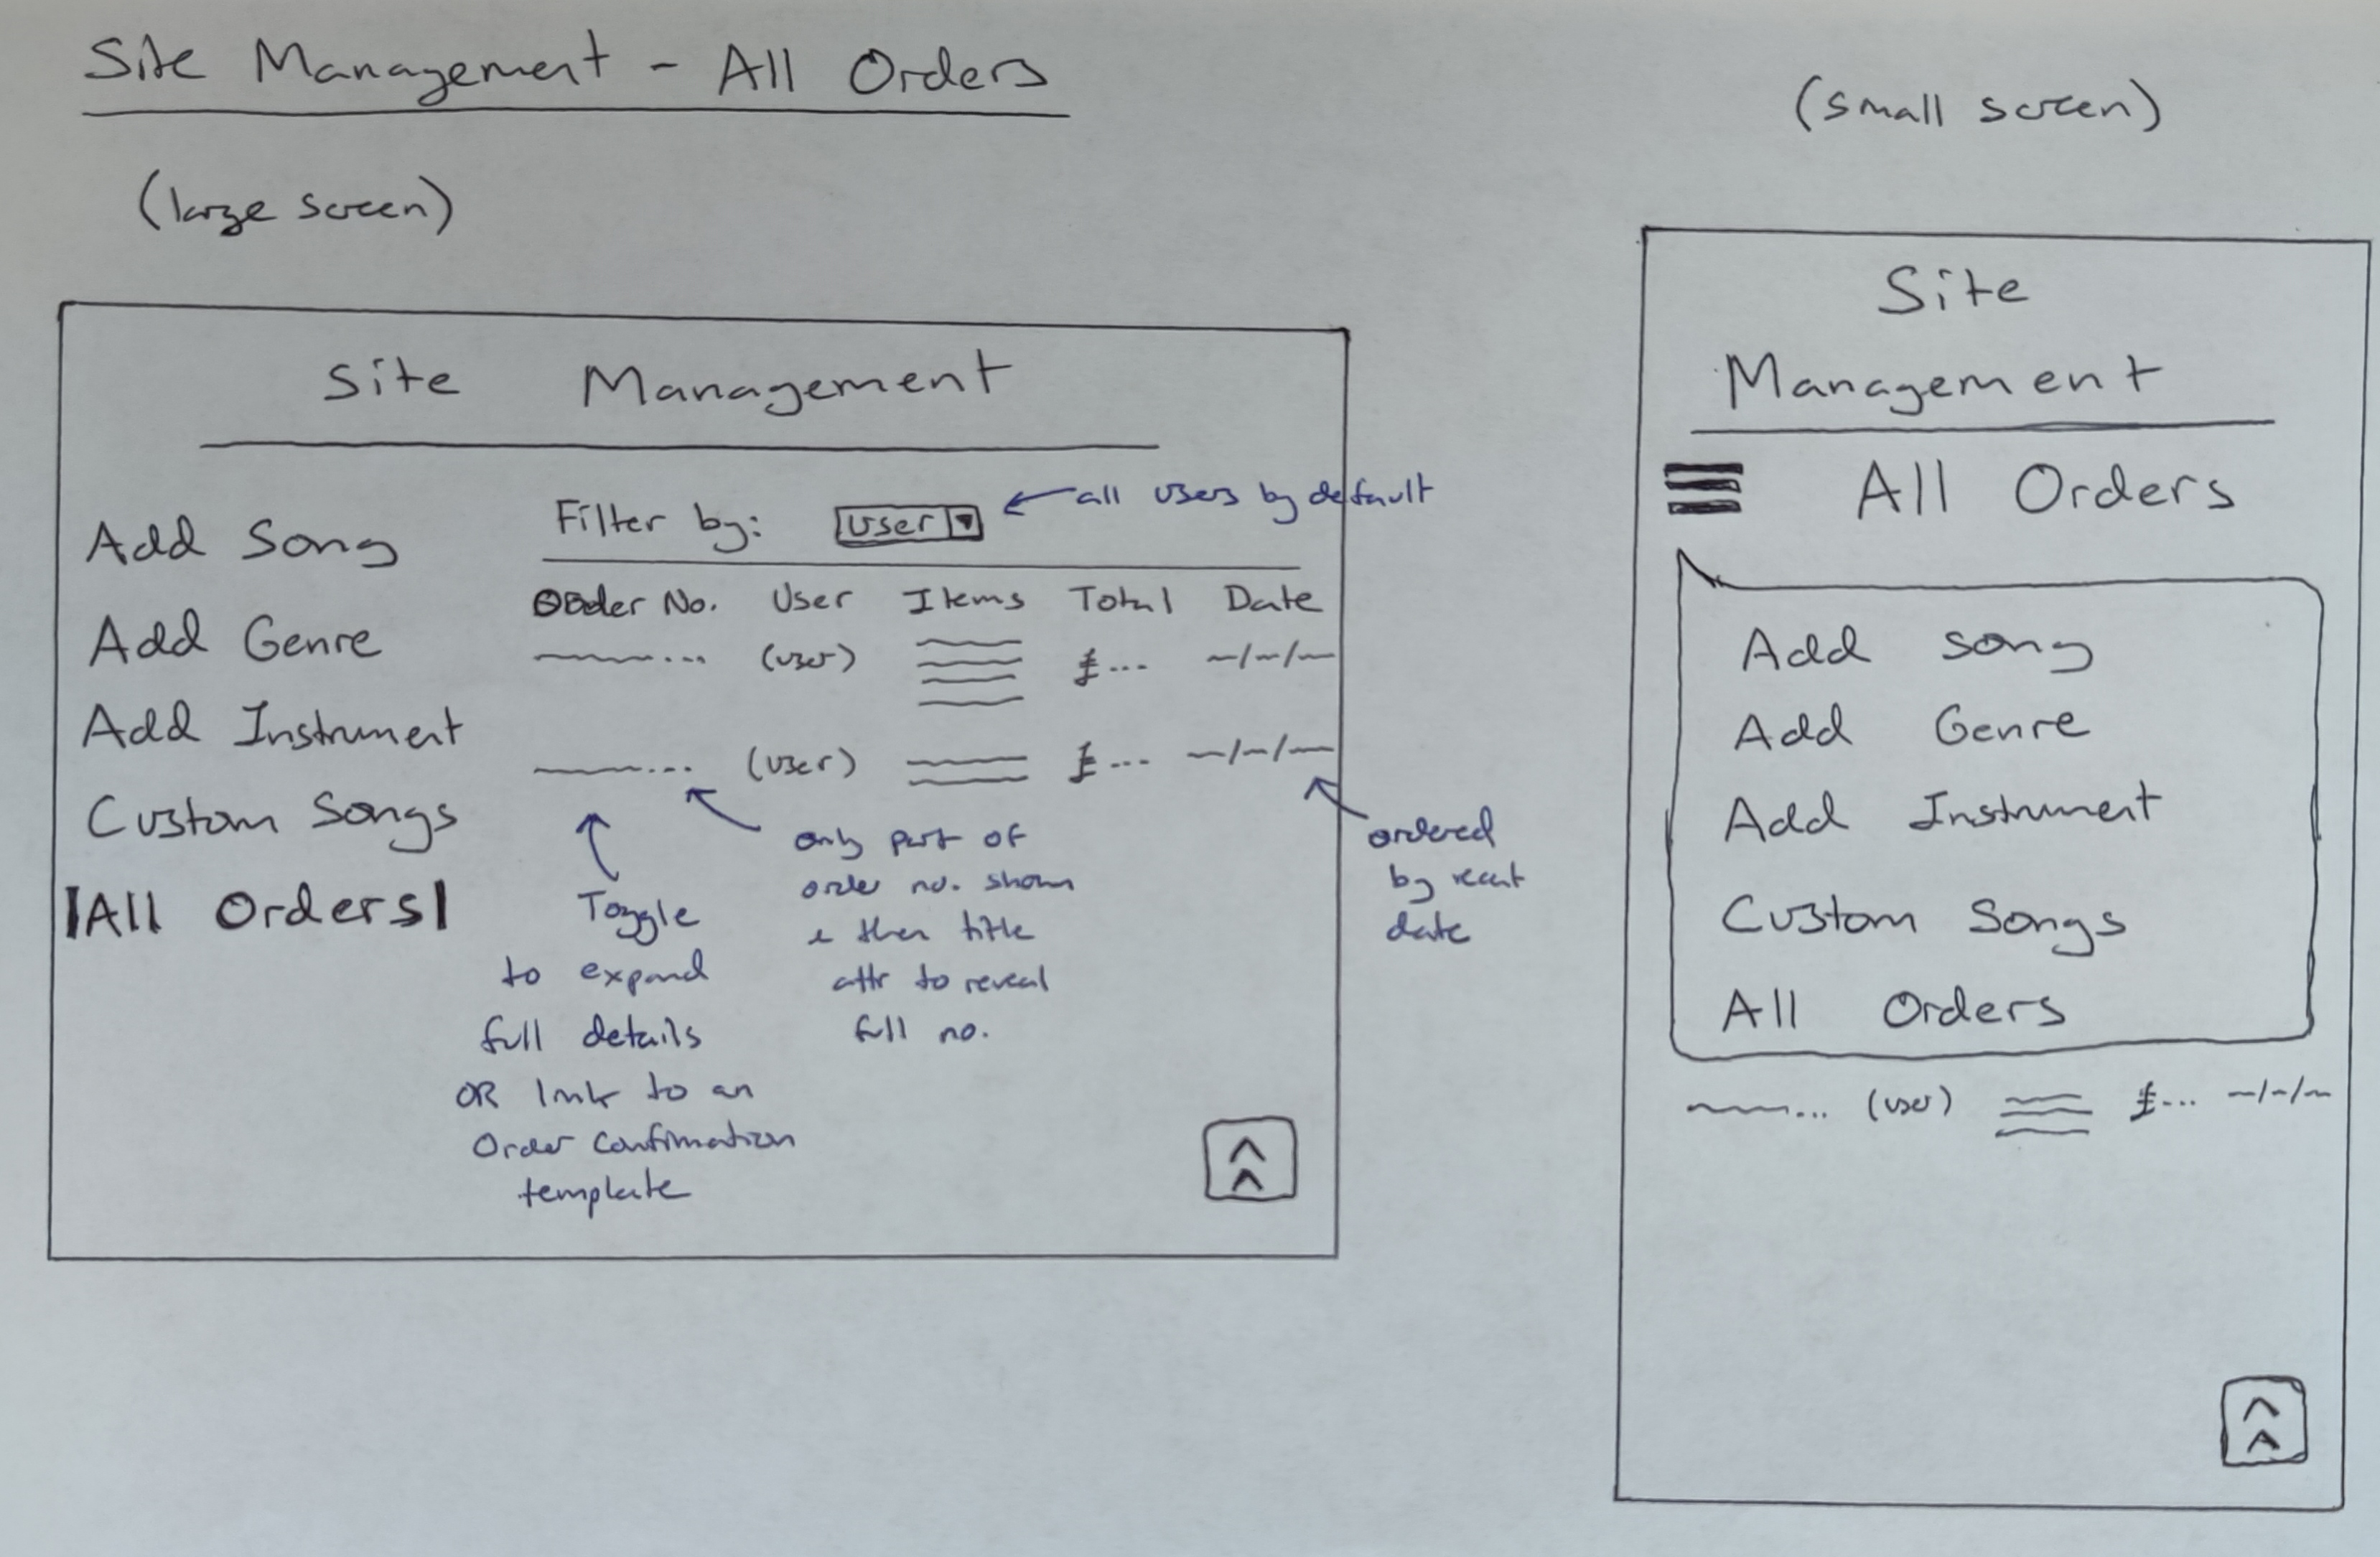 Site Management - All Orders
(large screen)
Site Management
Add Song
Add Genre
Add Instrument
Custom Songs
All Orders
Filter by: User
all users by default
Order No. User Items Total Date
... (user) £... -/-/-
... (user) £... -/-/-
Toggle
to expand
full details
OR link to an
Order Confirmation
template
only part of
order no. shown
& then title
attr to reveal
full no.
ordered
by recent
date
(small screen)
Site
Management
All Orders
Add Song
Add Genre
Add Instrument
Custom Songs
All Orders
... (user) £... -/-/-